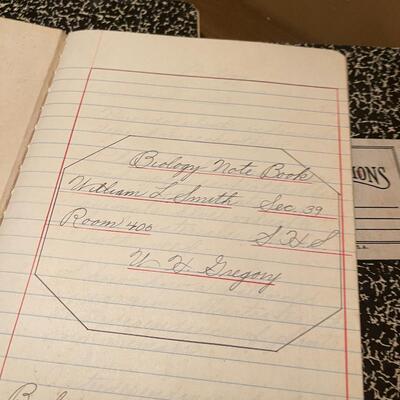 Biology Note Book
William L Smith Sec. 39
Room 406
S H S
W. H. Gregory